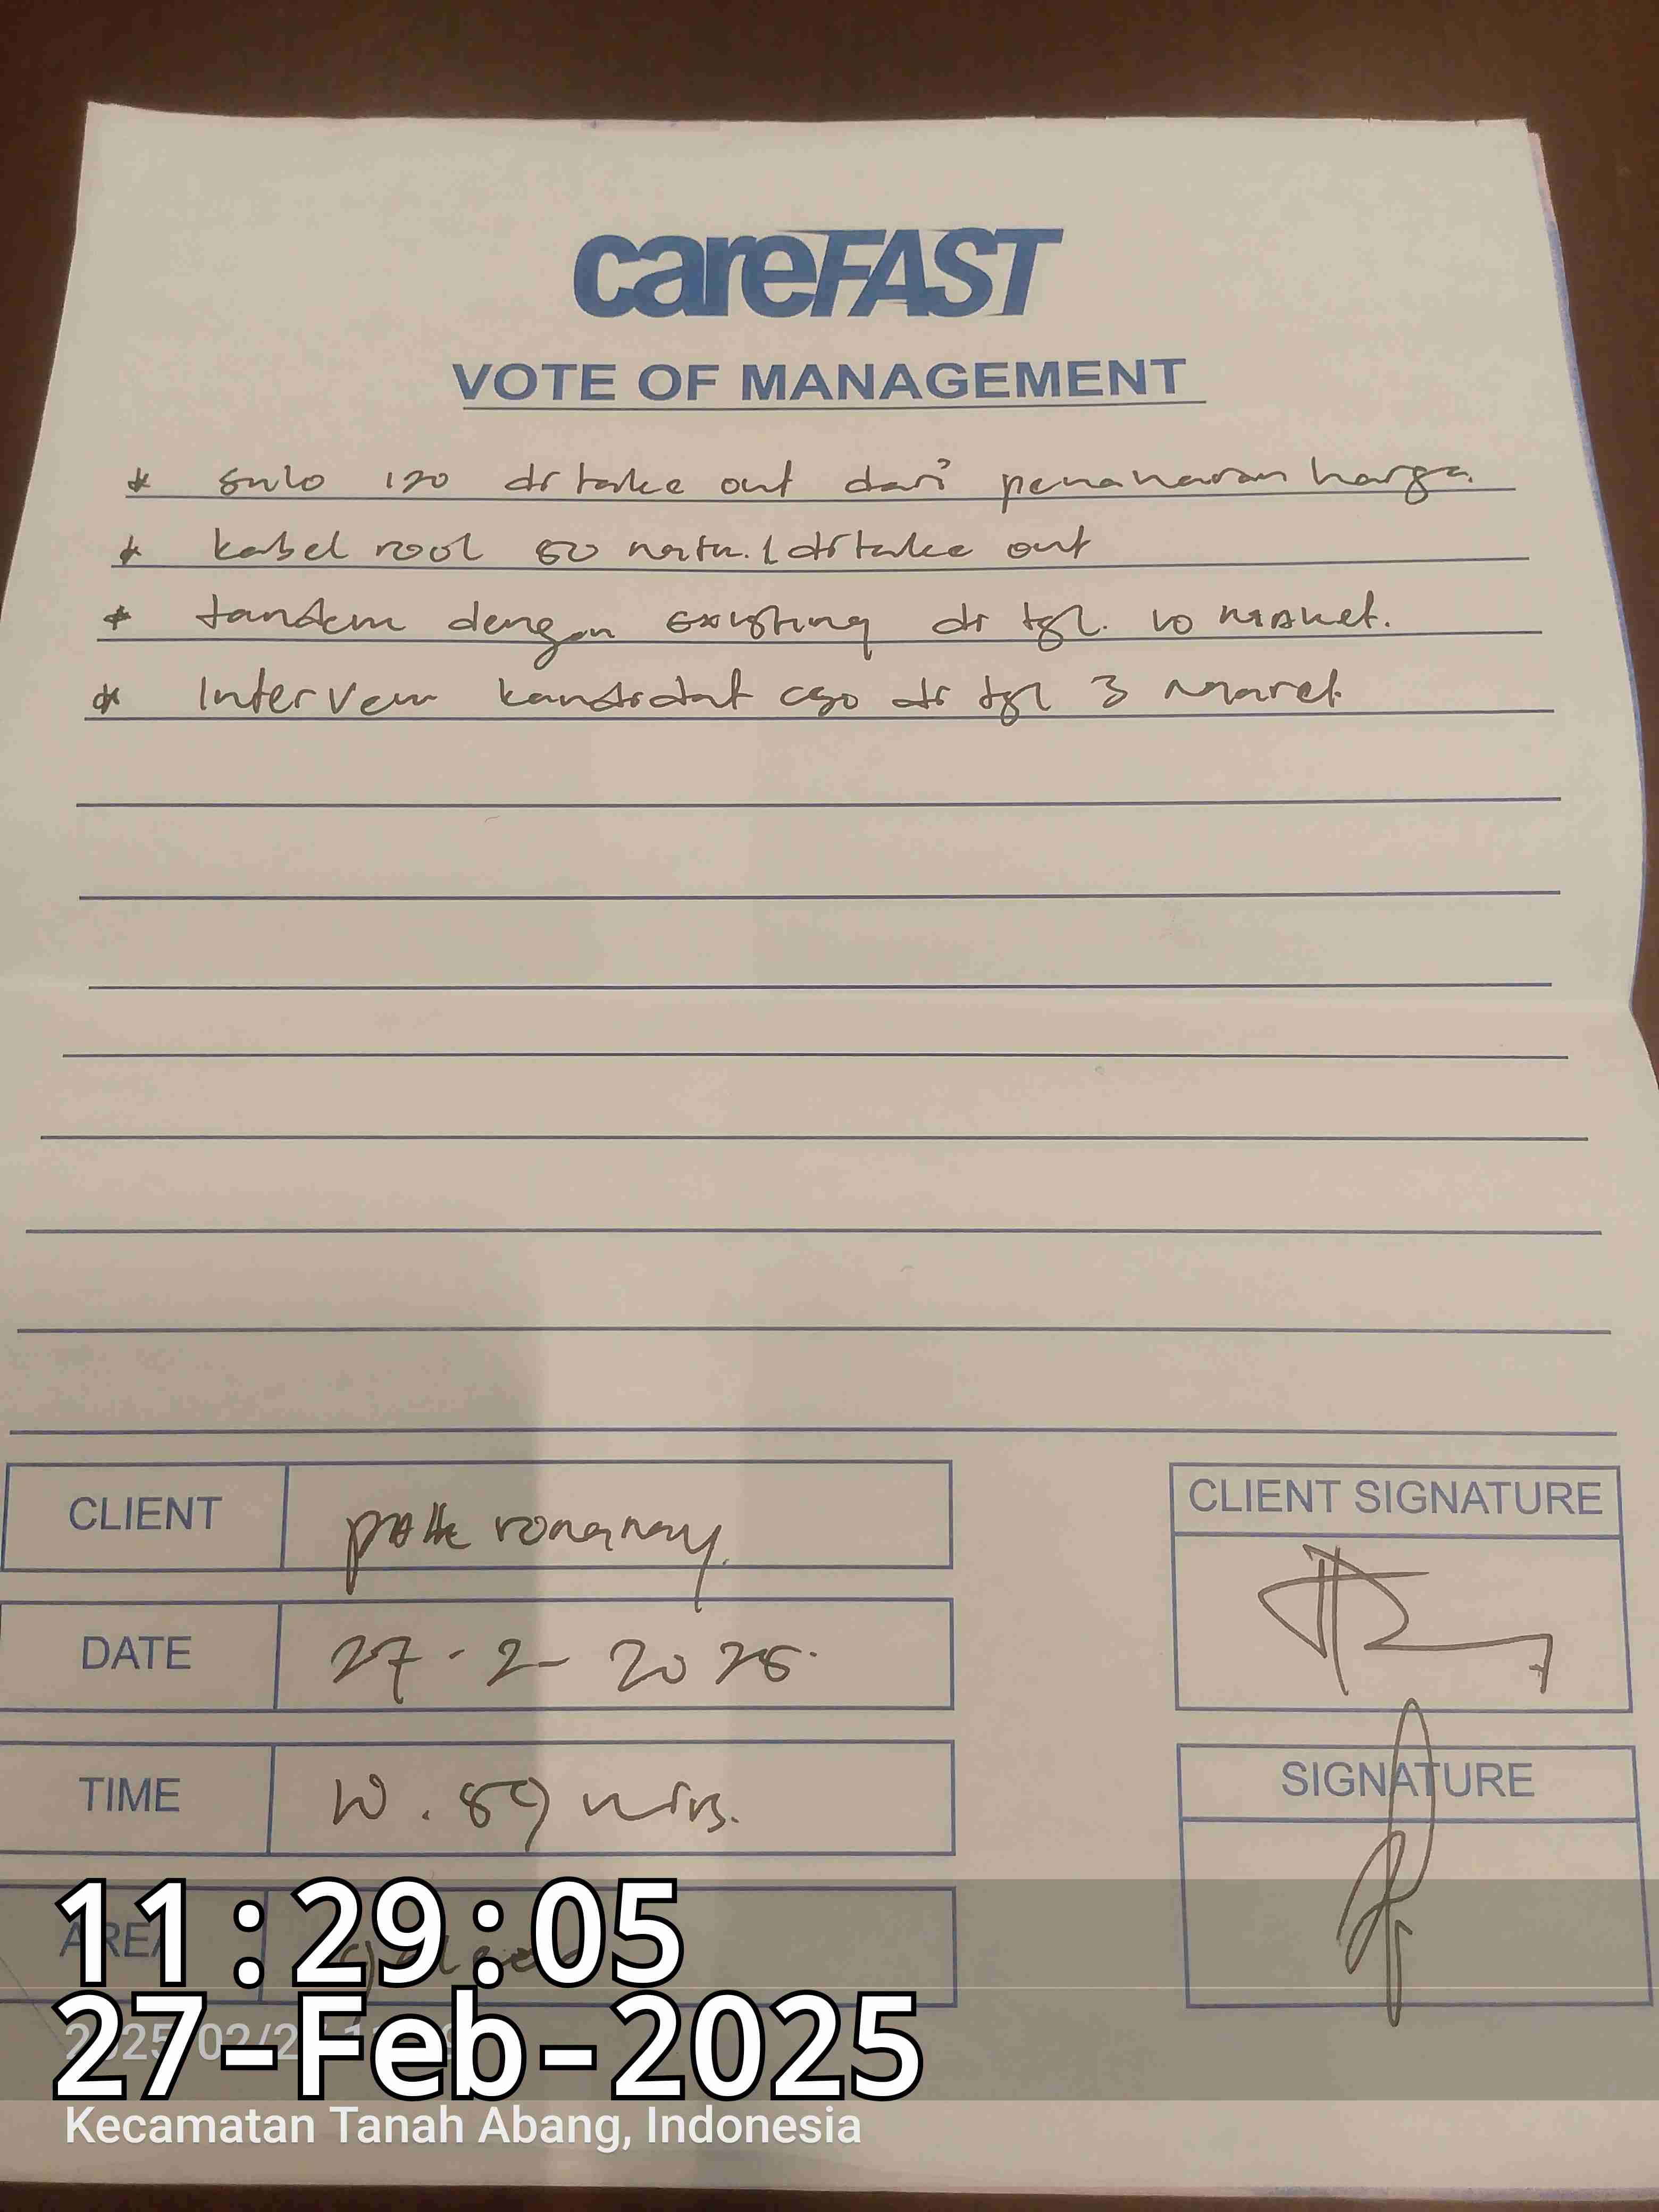 careFAST
VOTE OF MANAGEMENT
* sulo 120 di take out dari penawaran harga.
* kabel rool 50 di take out
* tandem dengan existing di tgl. 10 maret.
* Interview kandidat cso di tgl 3 maret
CLIENT
CLIENT SIGNATURE
DATE 27-2-2025.
TIME 10.59
SIGNATURE
AREA
11:29:05
27-Feb-2025
Kecamatan Tanah Abang, Indonesia